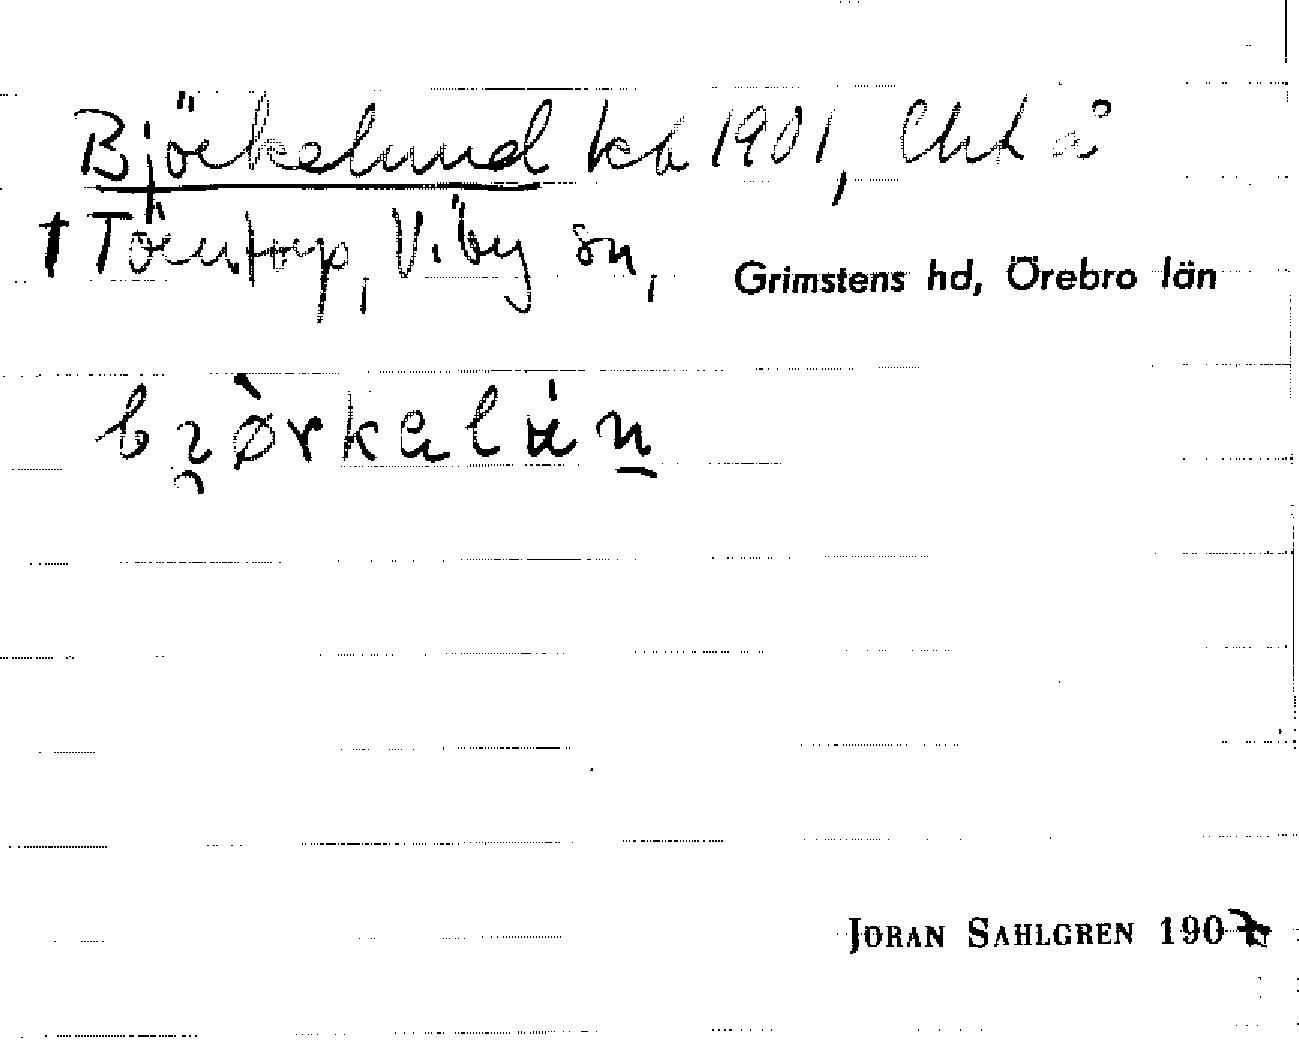 Björkelund kb 1901, Uht å
† Törntorp, Viby sn, Grimstens hd, Örebro län
bɿ̯ø̀rkalún̠
JORAN SAHLGREN 1907